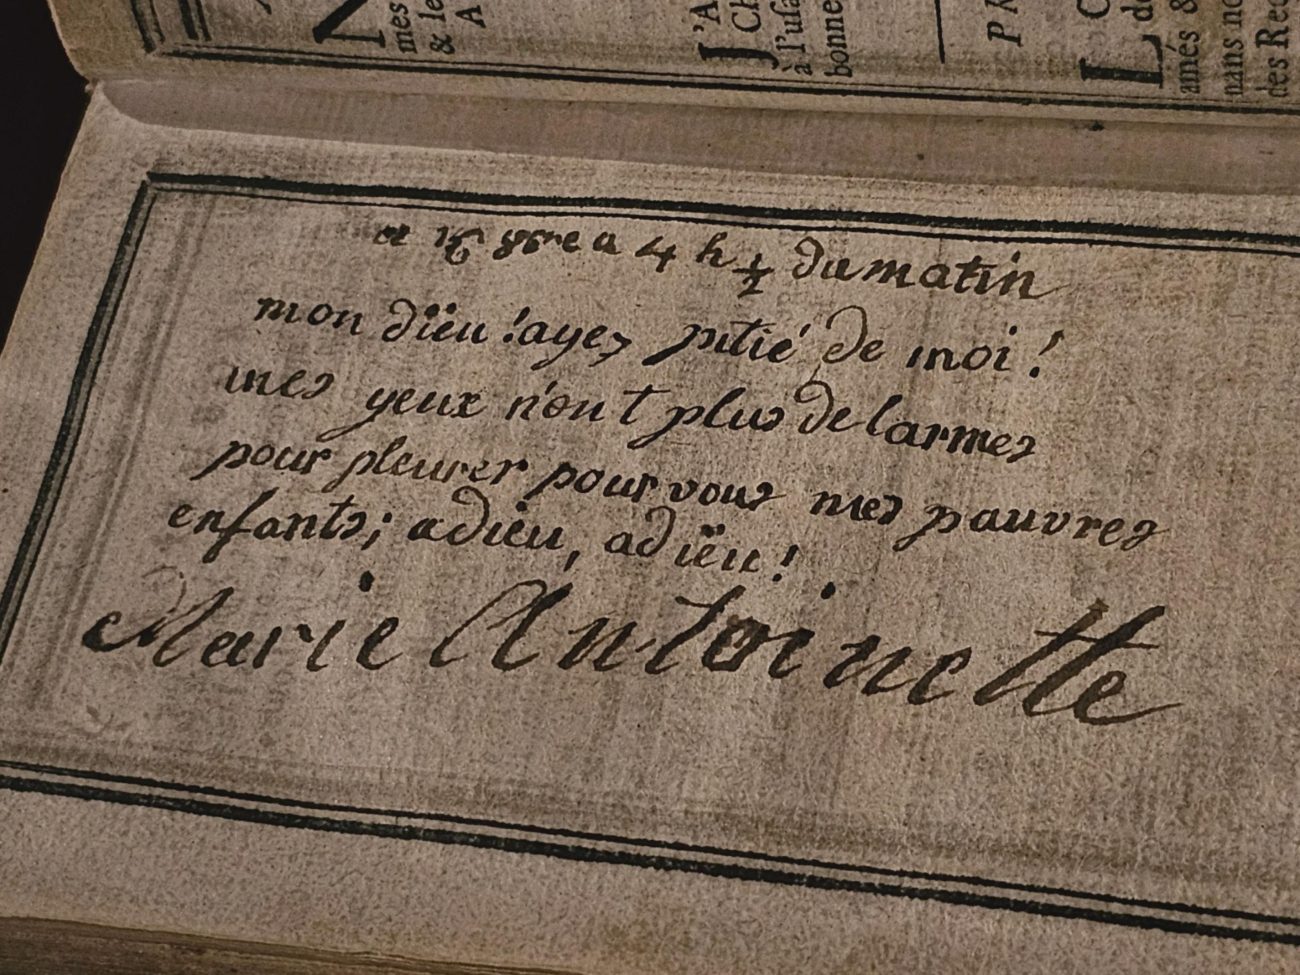 mes
& le
A
J'A
Ch
à l'usa
bonne
PR
L
de
amés &
nans no
des Rec
ce 16 8bre a 4 h ½ du matin
mon dïeu ! ayez pitié de moi !
mes yeux n'ont plus de larmes
pour pleurer pour vous mes pauvres
enfants; adieu, adïeu !
Marie Antoinette